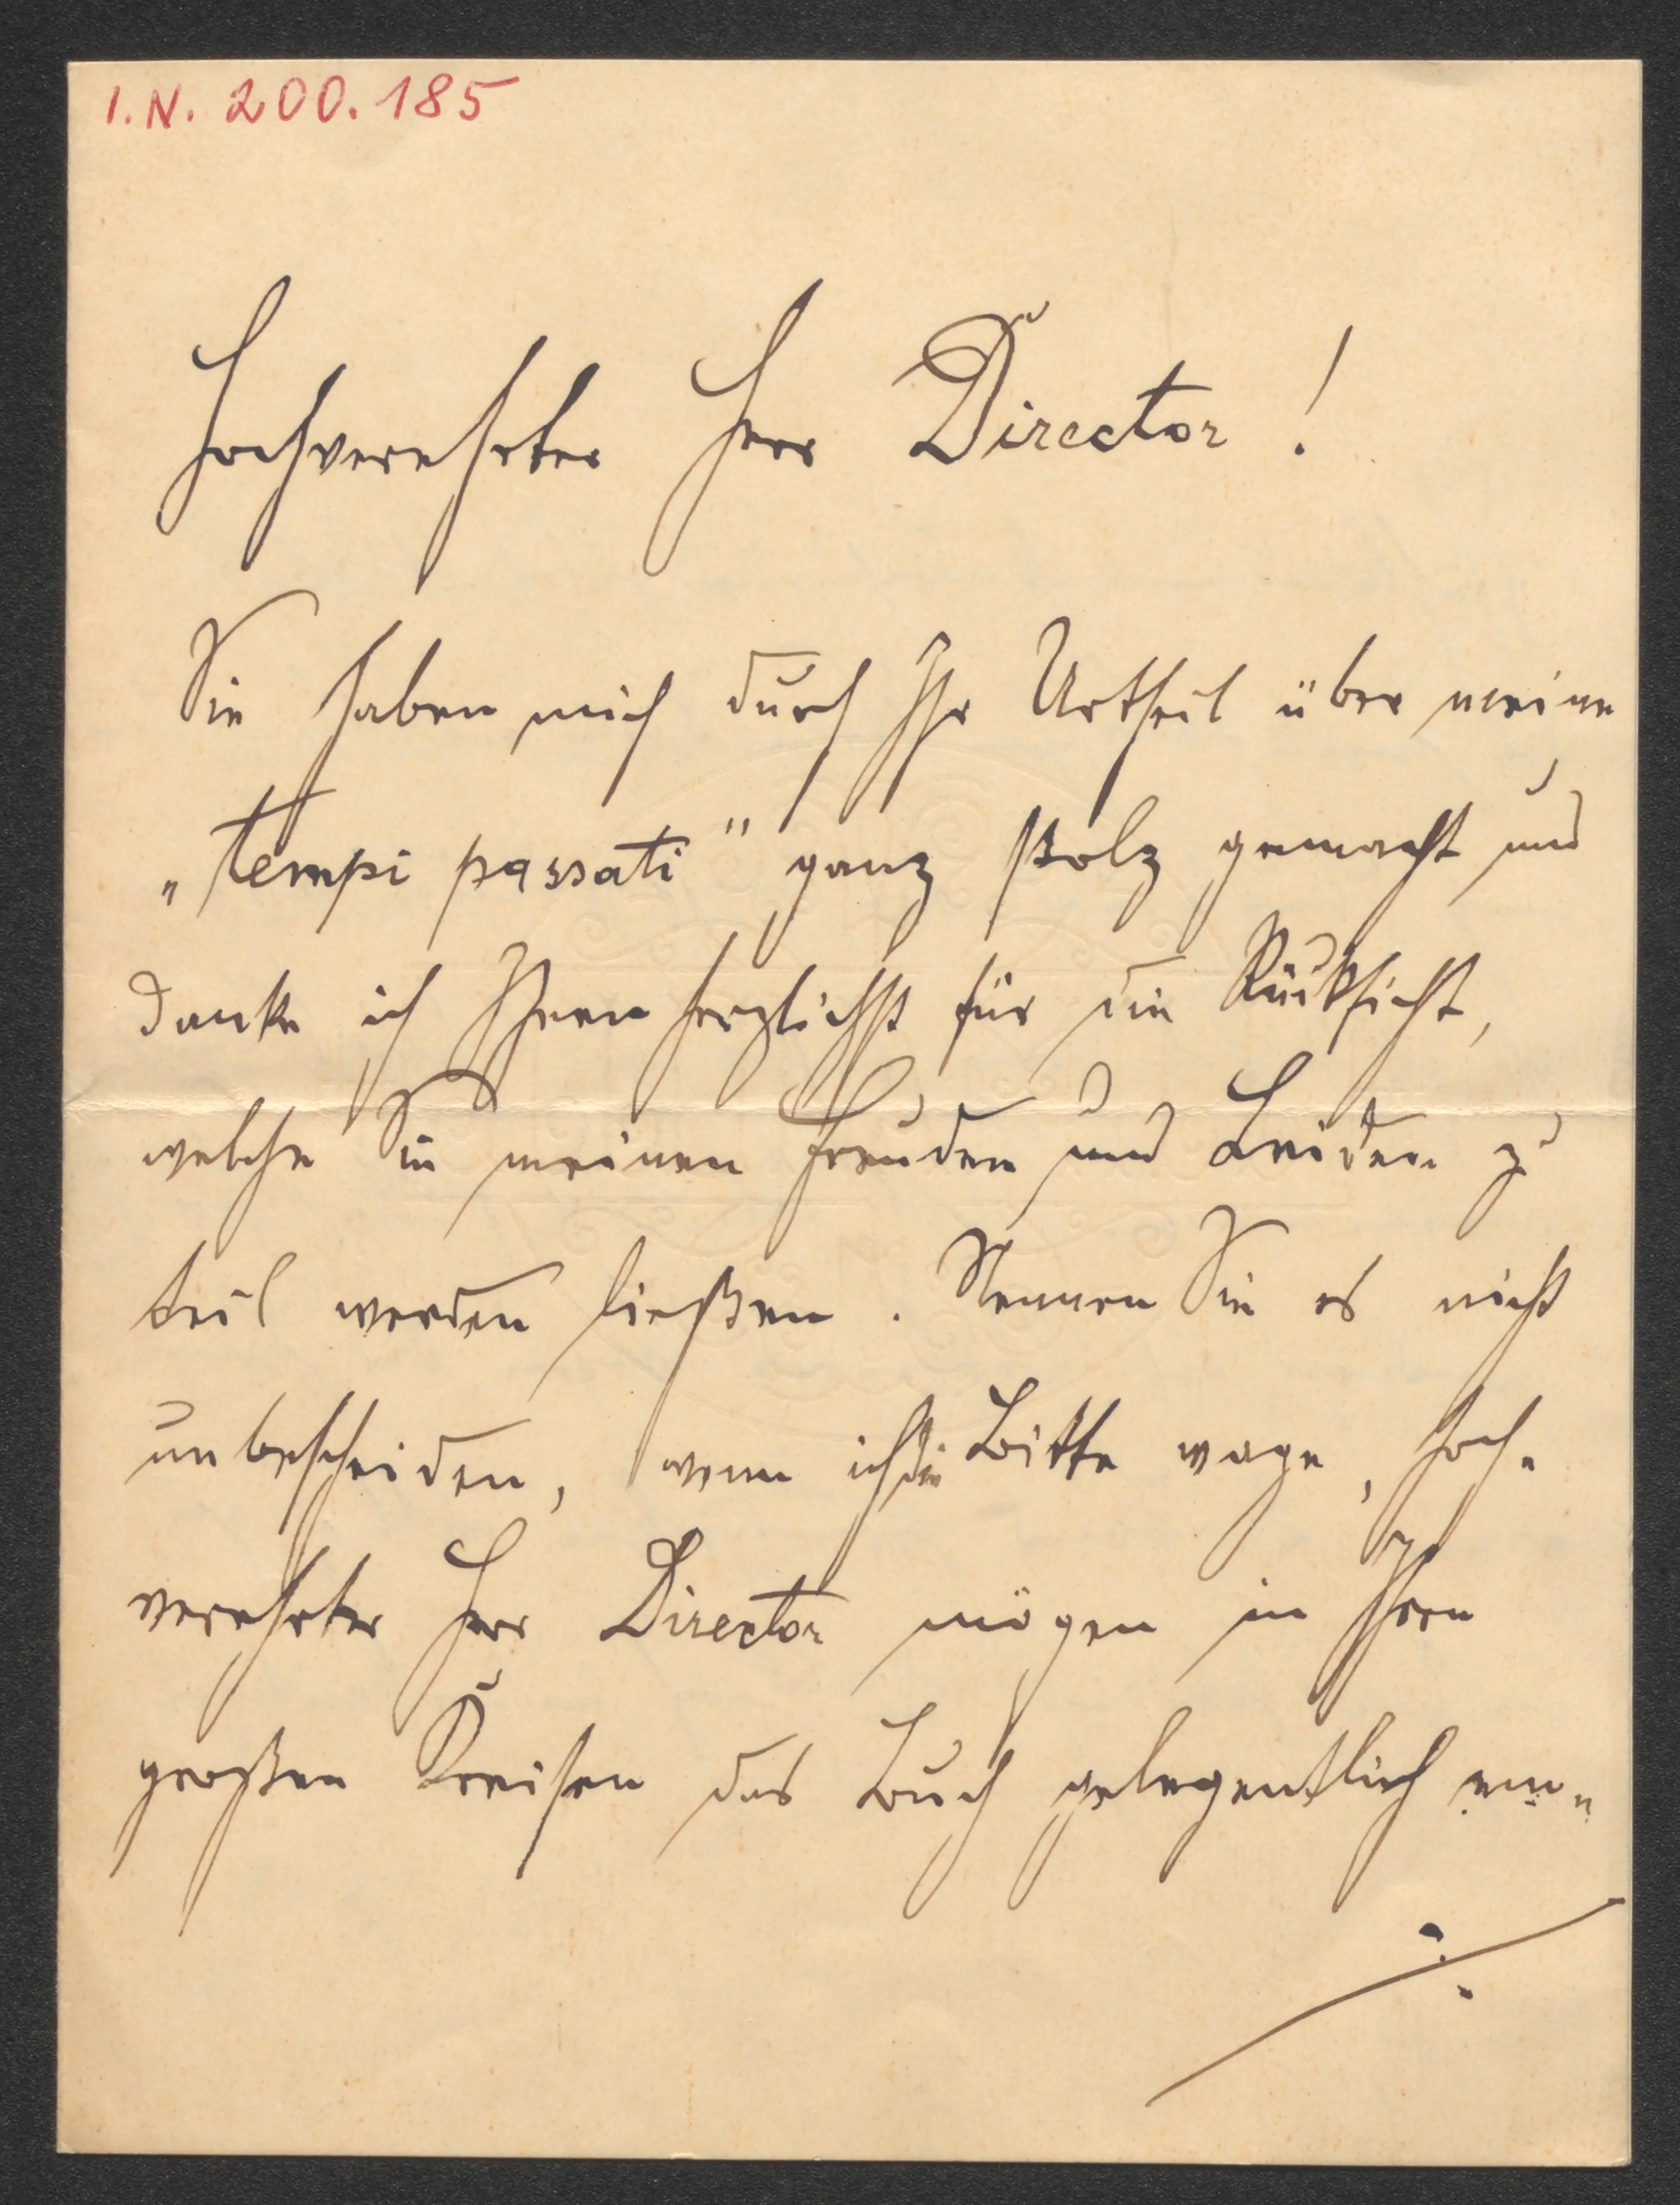 I.N. 200.185
Hochverehrter Herr Director!
Sie haben mich durch Ihr Urtheil über meine
„tempi passati" ganz stolz gemacht und
danke ich Ihnen herzlichst für die Rücksicht,
welche Sie meinen Freuden und Leiden zu
teil werden ließen. Nennen Sie es nicht
unbescheiden, wenn ich die Bitte wage, hoch-
verehrter Herr Director mögen in Ihren
großen Kreisen das Buch gelegentlich em-